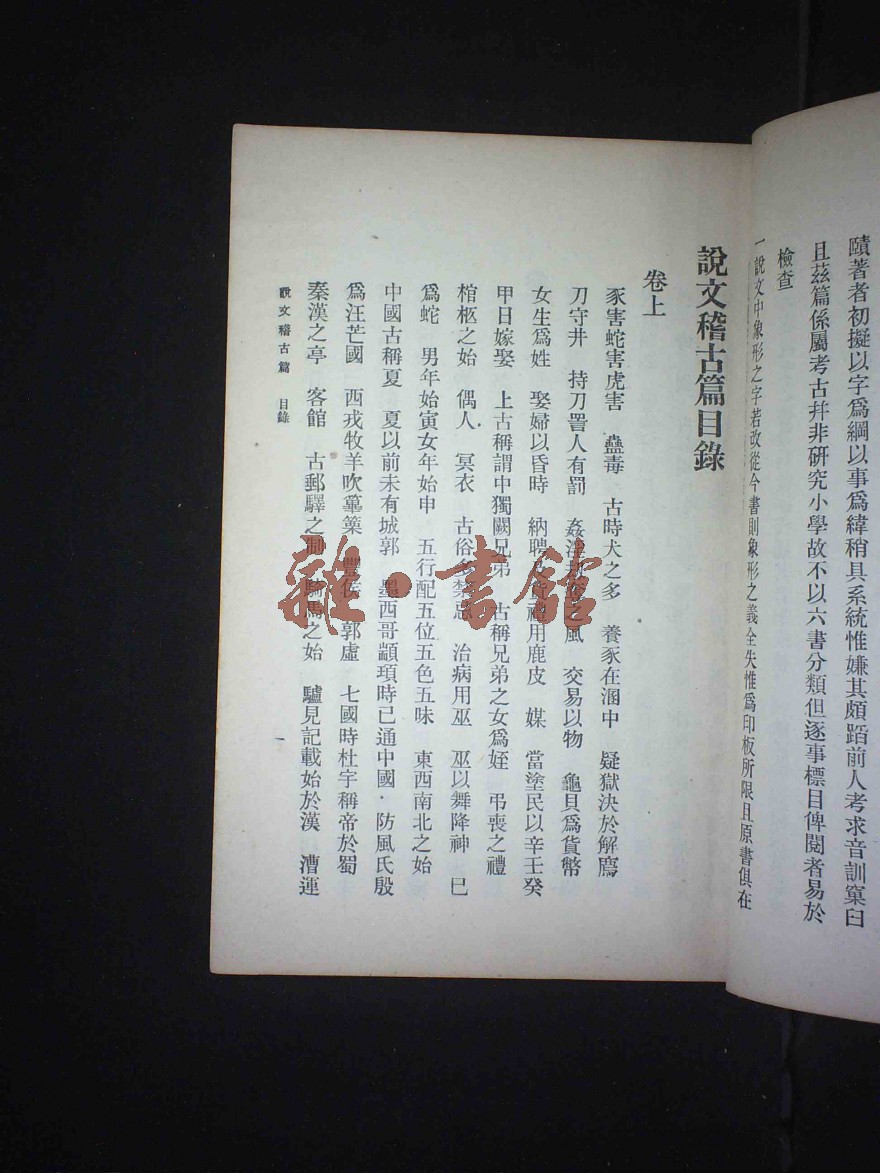 賾著者初擬以字爲綱以事爲緯稍具系統惟嫌其頗蹈前人考求音訓窠臼
且茲篇係屬考古幷非硏究小學故不以六書分類但逐事標目俾閱者易於
檢查
一說文中象形之字若改從今書則象形之義全失惟爲印板所限且原書俱在
說文稽古篇目錄
卷上
豕害蛇害虎害 蠱毒 古時犬之多 養豕在溷中 疑獄決於解廌
刀守井 持刀詈人有罰 姦淫 之風 交易以物 龜貝爲貨幣
女生爲姓 娶婦以昏時 納聘 禮用鹿皮 媒 當塗民以辛壬癸
甲日嫁娶 上古稱謂中獨闕兄弟 古稱兄弟之女爲姪 弔喪之禮
棺柩之始 偶人 冥衣 古俗 禁忌 治病用巫 巫以舞降神 巳
爲蛇 男年始寅女年始申 五行配五位五色五味 東西南北之始
中國古稱夏 夏以前未有城郭 墨西哥顓頊時已通中國 防風氏殷
爲汪芒國 西戎牧羊吹篳篥 豐侯 郭虛 七國時杜宇稱帝於蜀
秦漢之亭 客館 古郵驛之制 騎馬之始 驢見記載始於漢 漕運
說文稽古篇 目錄
一
雜·書館